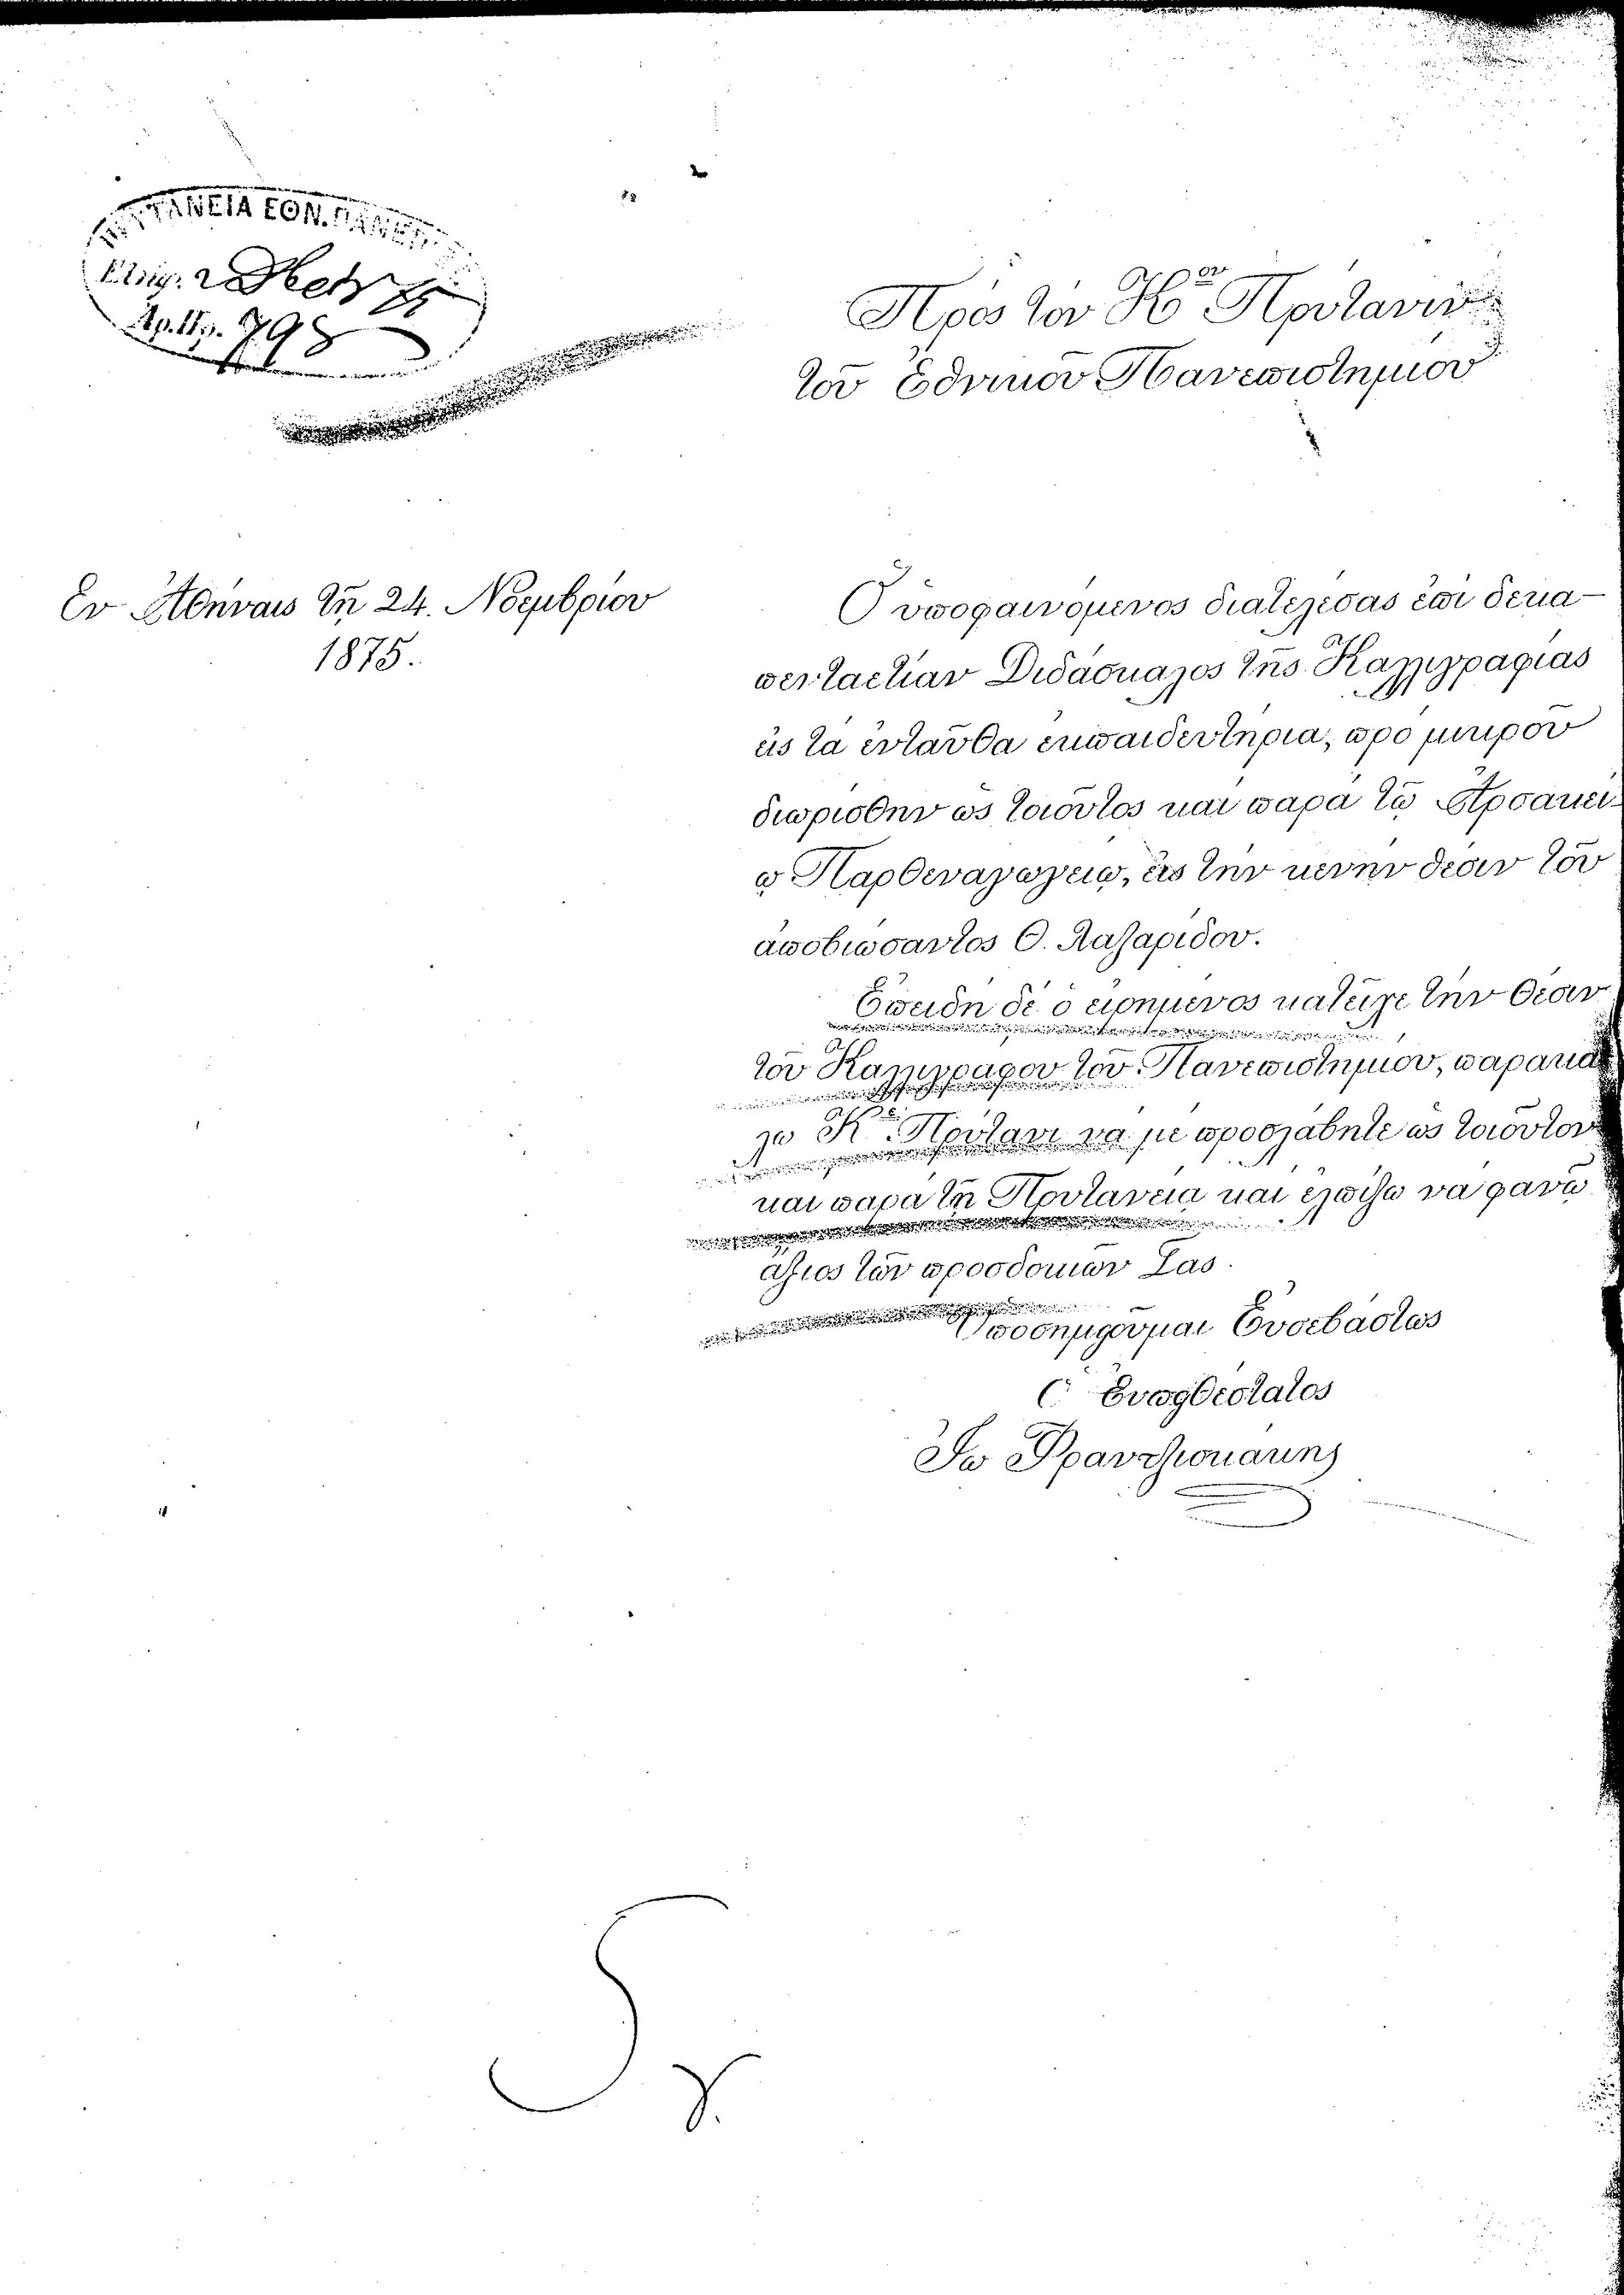 ΠΡΥΤΑΝΕΙΑ ΕΘΝ. ΠΑΝΕΠ
Ἀρ. Πρ. 798
Πρὸς τὸν Κον Πρύτανιν
τοῦ Ἐθνικοῦ Πανεπιστημίου
Ἐν Ἀθήναις τῇ 24. Νοεμβρίου
1875.
Ὁ ὑποφαινόμενος διατελέσας ἐπὶ δεκα-
πενταετίαν Διδάσκαλος τῆς Καλλιγραφίας
εἰς τὰ ἐνταῦθα ἐκπαιδευτήρια, πρὸ μικροῦ
διωρίσθην ὡς τοιοῦτος καὶ παρὰ τῷ Ἀρσακεί-
ῳ Παρθεναγωγείῳ, εἰς τὴν κενὴν θέσιν τοῦ
ἀποβιώσαντος Θ. Λαζαρίδου.
Ἐπειδὴ δὲ ὁ εἰρημένος κατεῖχε τὴν θέσιν
τοῦ Καλλιγράφου τοῦ Πανεπιστημίου, παρακα
λῶ Κε Πρύτανι νὰ μὲ προσλάβητε ὡς τοιοῦτον
καὶ παρὰ τῇ Πρυτανείᾳ καὶ ἐλπίζω νὰ φανῶ
ἄξιος τῶν προσδοκιῶν Σας.
Ὑποσημειοῦμαι Εὐσεβάστως
Ὁ Εὐπειθέστατος
Ἰω Φραντζισκάκης